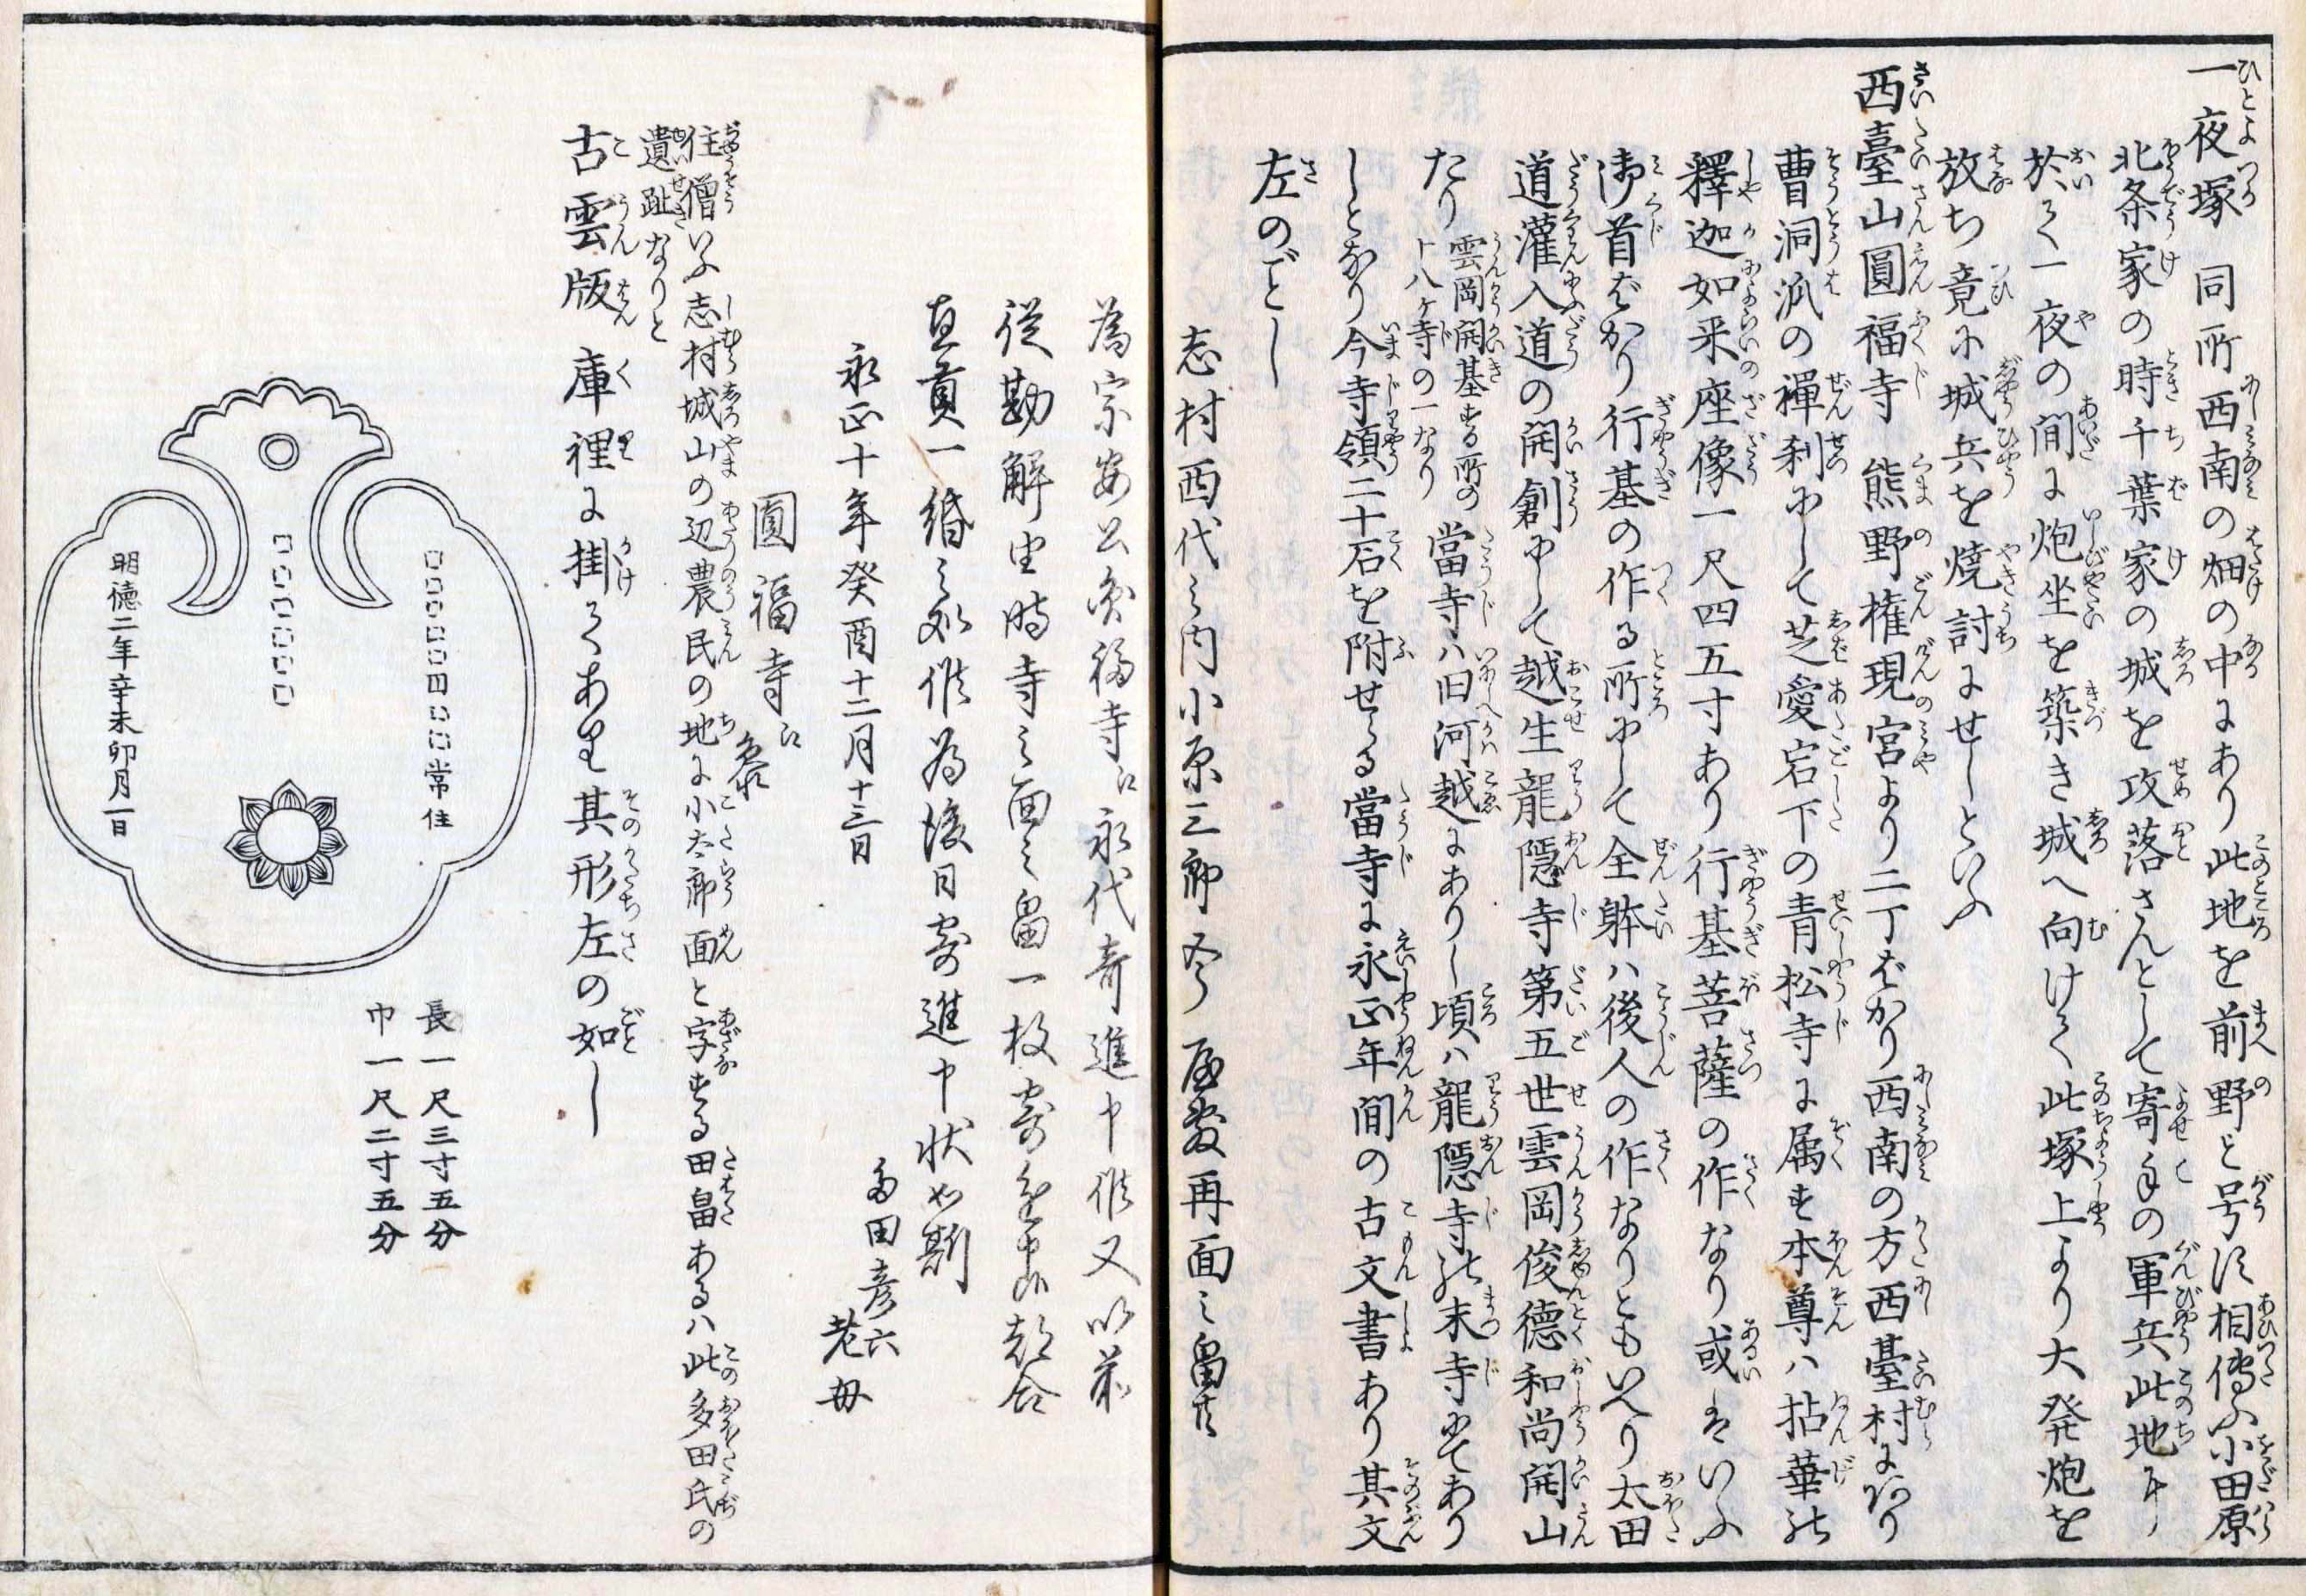 一夜塚　同所西南の畑の中にあり此地を前野と号す相傳ふ小田原
北条家の時千葉家の城を攻落さんとして寄手の軍兵此地に
於て一夜の間に炮坐を築き城へ向けて此塚上より大発炮を
放ち竟に城兵を焼討にせしといふ
西臺山圓福寺　熊野権現宮より二丁ばかり西南の方西臺村にあり
曹洞派の禪刹にして芝愛宕下の青松寺に属す本尊ハ拈華の
釋迦如来座像一尺四五寸あり行基菩薩の作なり或はいふ
御首ばかり行基の作る所にして全躰ハ後人の作なりともいへり太田
道灌入道の開創にして越生龍隠寺第五世雲岡俊德和尚開山
たり
雲岡開基する所の
十八ヶ寺の一なり
當寺ハ旧河越にありし頃ハ龍隠寺の末寺にてあり
しとなり今寺領二十石を附せらる當寺に永正年間の古文書あり其文
左のごとし
志村西代之内小原三郎
屋敷再面之畠
為宗安公圓福寺江永代寄進申候又以前
従勘解由時寺之面之畠一枚寄進申候都合
直貢一緡之処候為後日寄進申状如斯
永正十年癸酉十二月十三日
多田彦六
老母
圓福寺江
参
住僧いふ志村城山の辺農民の地に小太郎面と字する田畠あるハ此多田氏の
遺趾なりと
古雲版　庫裡に掛てあり其形左の如し
□□□□□田□□常住
□□□□□□
明徳二年辛未卯月一日
長一尺三寸五分
巾一尺二寸五分